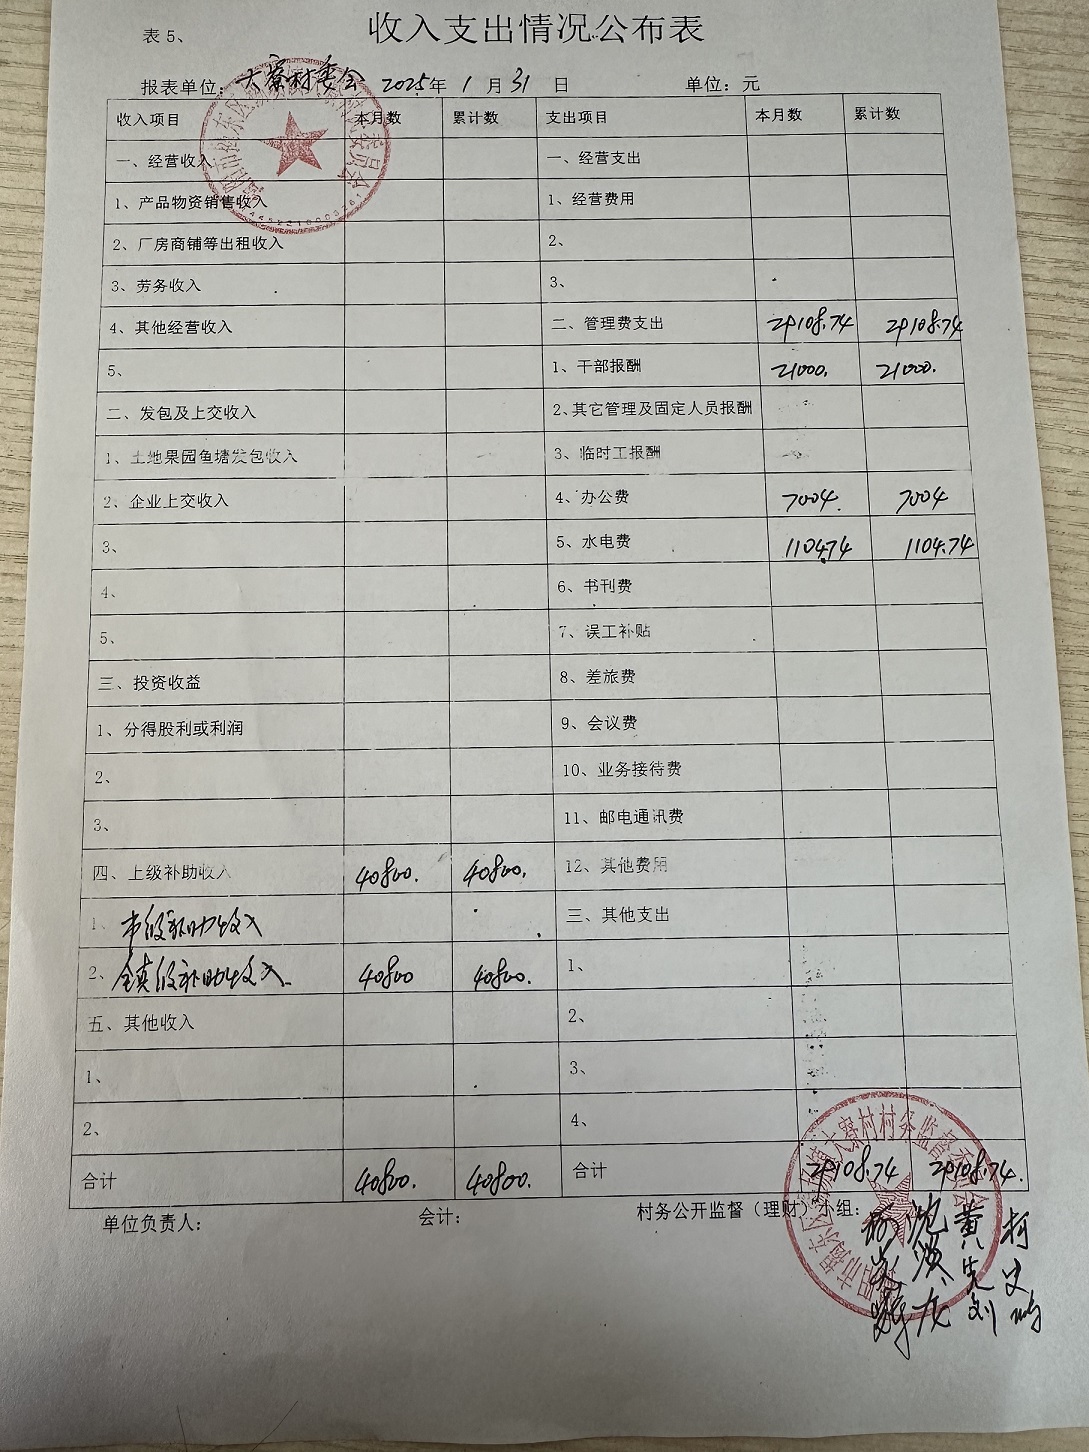 表5、
收入支出情况公布表
报表单位：大寮村委会 2025年 1 月 31 日 单位：元
收入项目 本月数 累计数 支出项目 本月数 累计数
一、经营收入 一、经营支出
1、产品物资销售收入 1、经营费用
2、厂房商铺等出租收入 2、
3、劳务收入 3、
4、其他经营收入 二、管理费支出 29108.74 29108.74
5、 1、干部报酬 21000. 21000.
二、发包及上交收入 2、其它管理及固定人员报酬
1、土地果园鱼塘发包收入 3、临时工报酬
2、企业上交收入 4、办公费 7004. 7004
3、 5、水电费 1104.74 1104.74
4、 6、书刊费
5、 7、误工补贴
三、投资收益 8、差旅费
1、分得股利或利润 9、会议费
2、 10、业务接待费
3、 11、邮电通讯费
四、上级补助收入 40800. 40800. 12、其他费用
1、市级补助收入 三、其他支出
2、镇级补助收入. 40800 40800. 1、
五、其他收入 2、
1、 3、
2、 4、
合计 40800. 40800. 合计 29108.74 29108.74.
单位负责人： 会计： 村务公开监督（理财）小组：
大寮村村务监督委员会